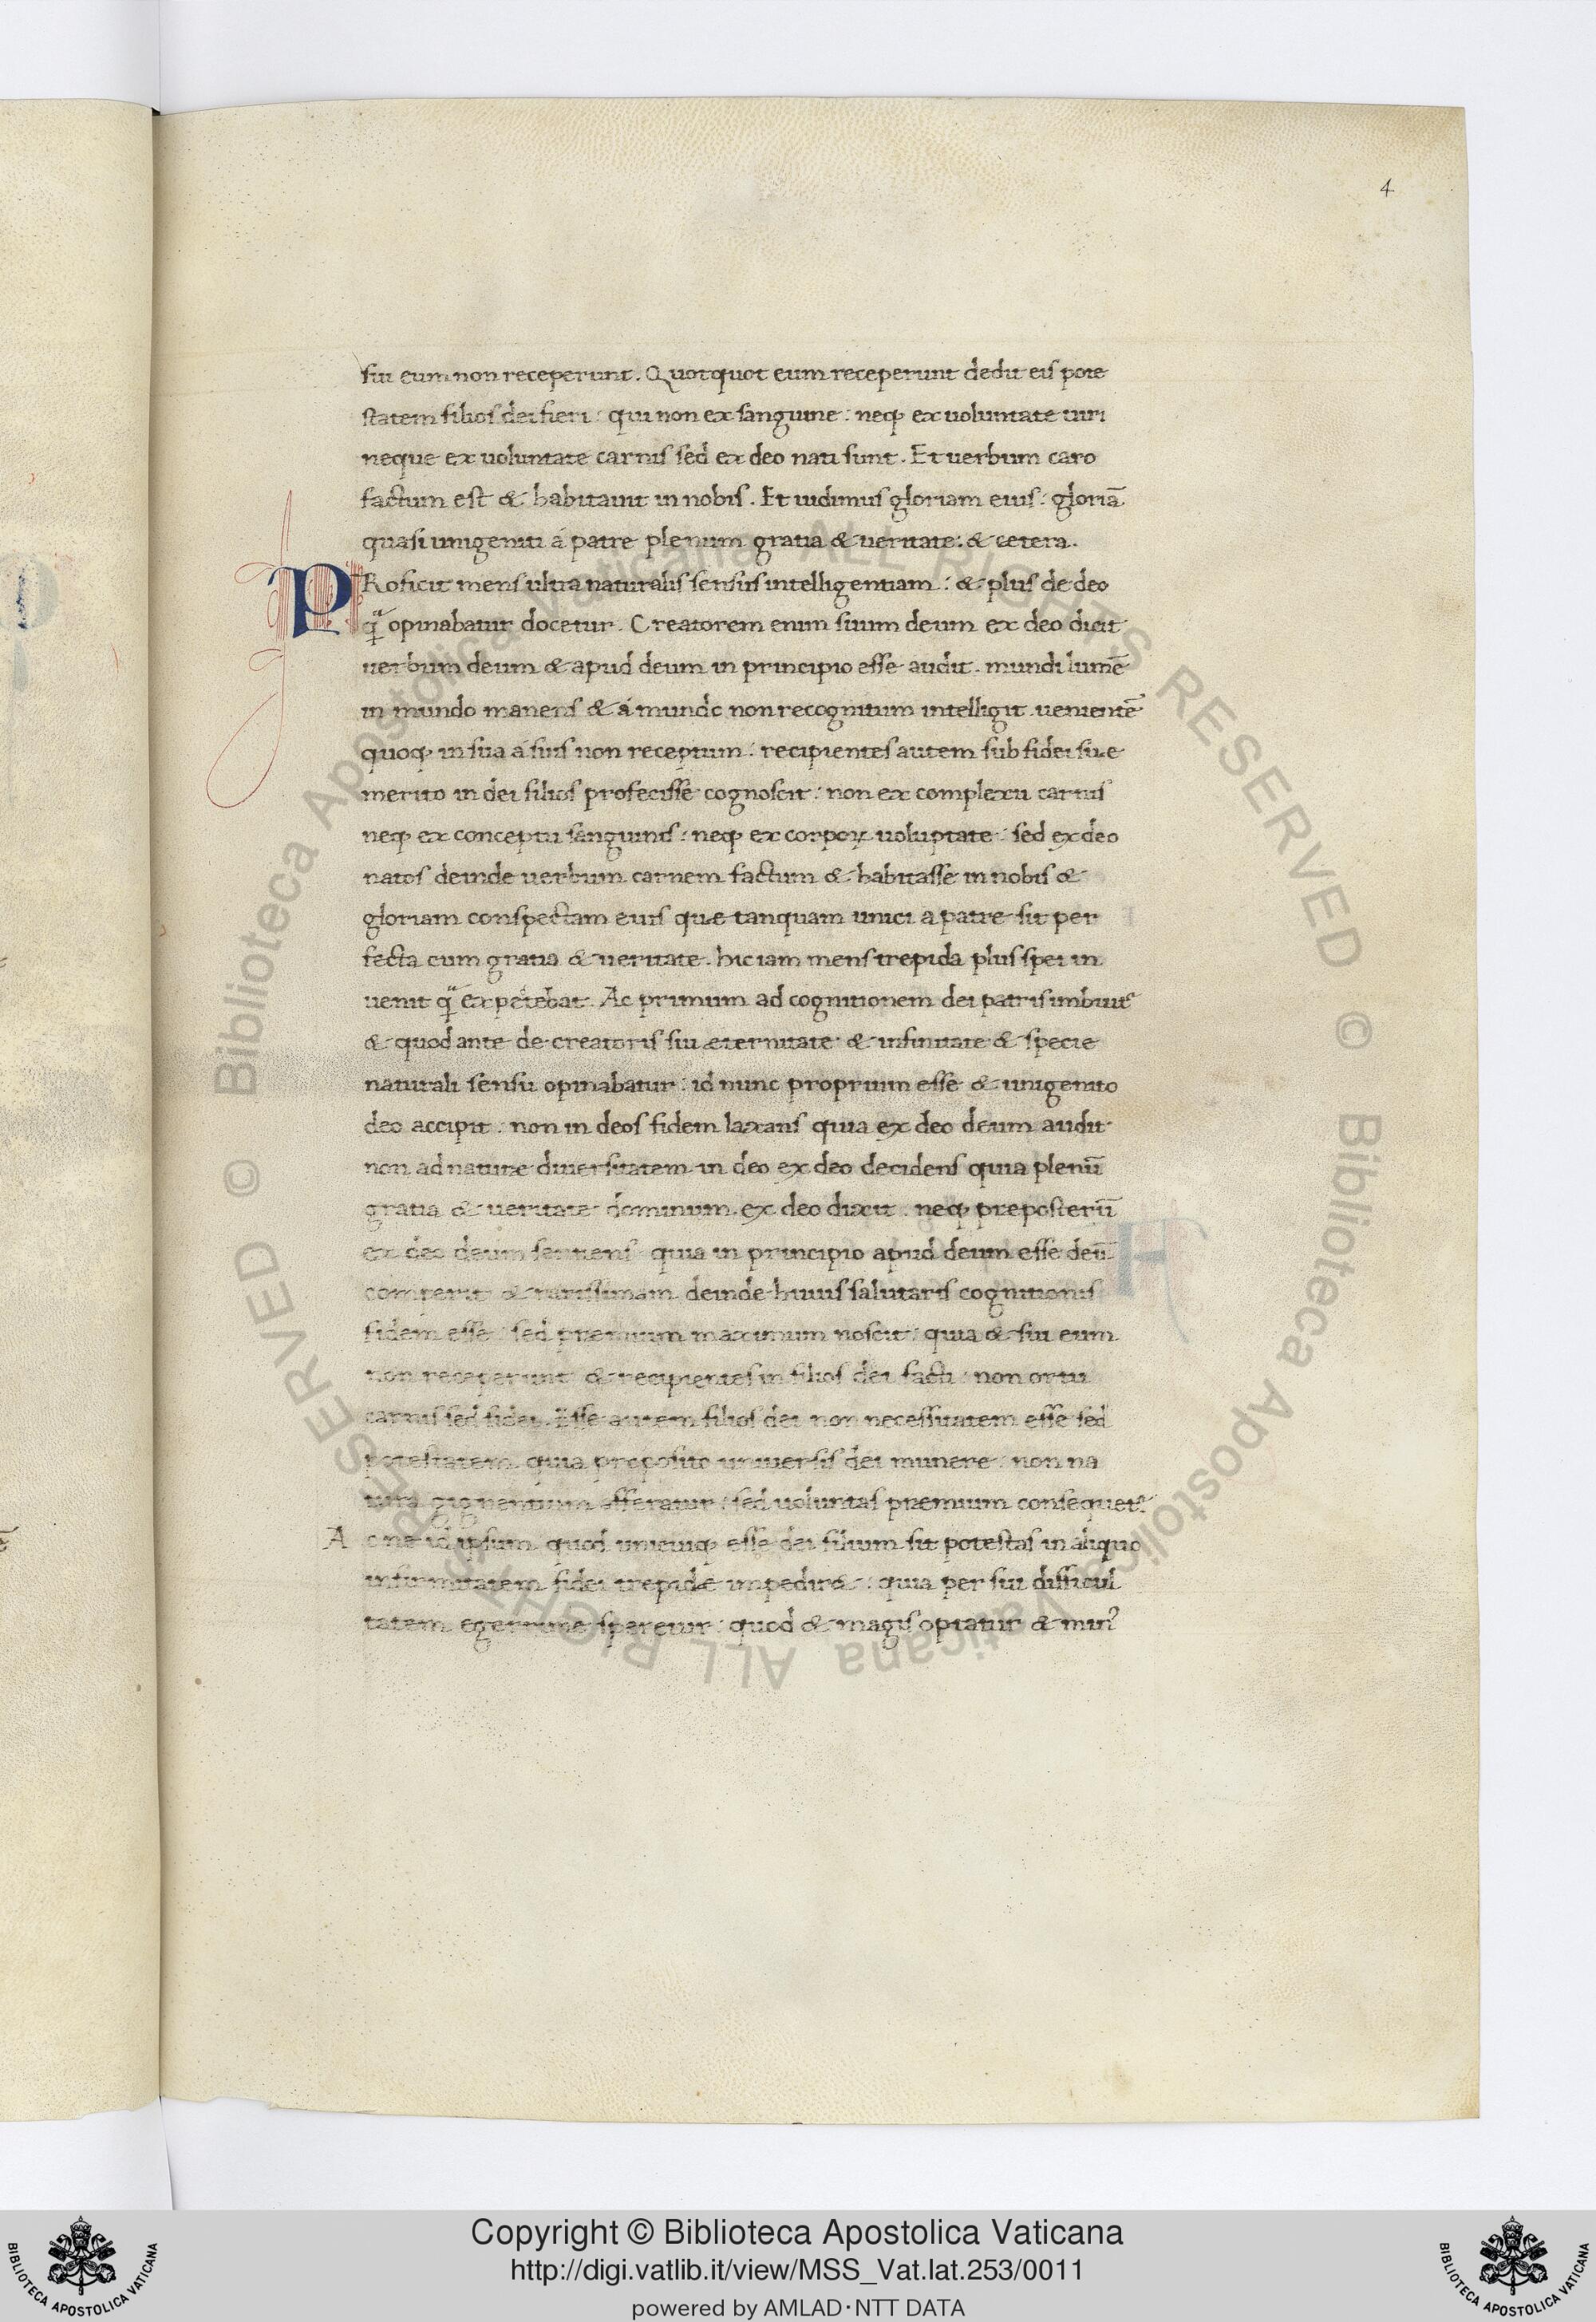 4
sui eum non receperunt. Quotquot eum receperunt dedit eis pote
statem filios dei fieri: qui non ex sanguine: neqꝫ ex uoluntate uiri
neque ex uoluntate carnis sed ex deo nati sunt. Et uerbum caro
factum est & habitauit in nobis. Et uidimus gloriam eius: gloriā
quasi unigeniti á patre plenum gratia & ueritate: & cetera.
PRoficit mens ultra naturalis sensus intelligentiam: & plus de deo
qᷓ opinabatur docetur. Creatorem enim suum deum ex deo dicit
uerbum deum & apud deum in principio esse audit. mundi lumē
in mundo manens & á mundo non recognitum intelligit. uenientē
quoqꝫ in sua á suis non receptum: recipientes autem sub fidei suæ
merito in dei filios profecisse cognoscit: non ex complexu carnis
neqꝫ ex conceptu sanguinis: neqꝫ ex corpoꝝ uoluptate: sed ex deo
natos deinde uerbum carnem factum & habitasse in nobis &
gloriam conspectam eius quæ tanquam unici a patre sit per
fecta cum gratia & ueritate. hic iam mens trepida plus spei in
uenit qᷓ expetebat. Ac primum ad cognitionem dei patris imbuit᷑
& quod ante de creatoris sui æternitate & infinitate & specie
naturali sensu opinabatur: id nunc proprium esse & unigenito
deo accipit: non in deos fidem laxans quia ex deo deum audit
non ad naturæ diuersitatem in deo ex deo decidens quia plenū
gratia & ueritate dominum ex deo dixit. neqꝫ preposterū
ex deo deum sentiens quia in principio apud deum esse deū
comperit & rarissimam deinde huius salutaris cognitionis
fidem esse: sed præmium maximum noscit: quia & sui eum
non receperunt & recipientes in filios dei facti: non ortu
carnis sed fidei. Esse autem filios dei non necessitatem esse sed
potestatem quia proposito uniuersis dei munere: non na
tura gignentium afferatur: sed uoluntas præmium consequet᷑
Ac ne id ipsum quod unicuiqꝫ esse dei filium sit potestas in aliquo
infirmitatem fidei trepidæ impedire: quia per sui difficul
tatem egerrime speretur: quod & magis optatur & minꝰ
Copyright © Biblioteca Apostolica Vaticana
http://digi.vatlib.it/view/MSS_Vat.lat.253/0011
powered by AMLAD·NTT DATA
BIBLIOTECA APOSTOLICA VATICANA
BIBLIOTECA APOSTOLICA VATICANA
© Biblioteca Apostolica Vaticana ALL RIGHTS RESERVED © Biblioteca Apostolica Vaticana ALL RIGHTS RESERVED